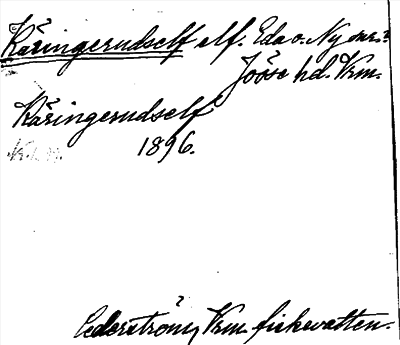 Käringerudself elf. Eda o. Ny snr.
Jösse hd. Vrm.
Käringerudself
1896.
Cederström, Vrm. fiskevatten.